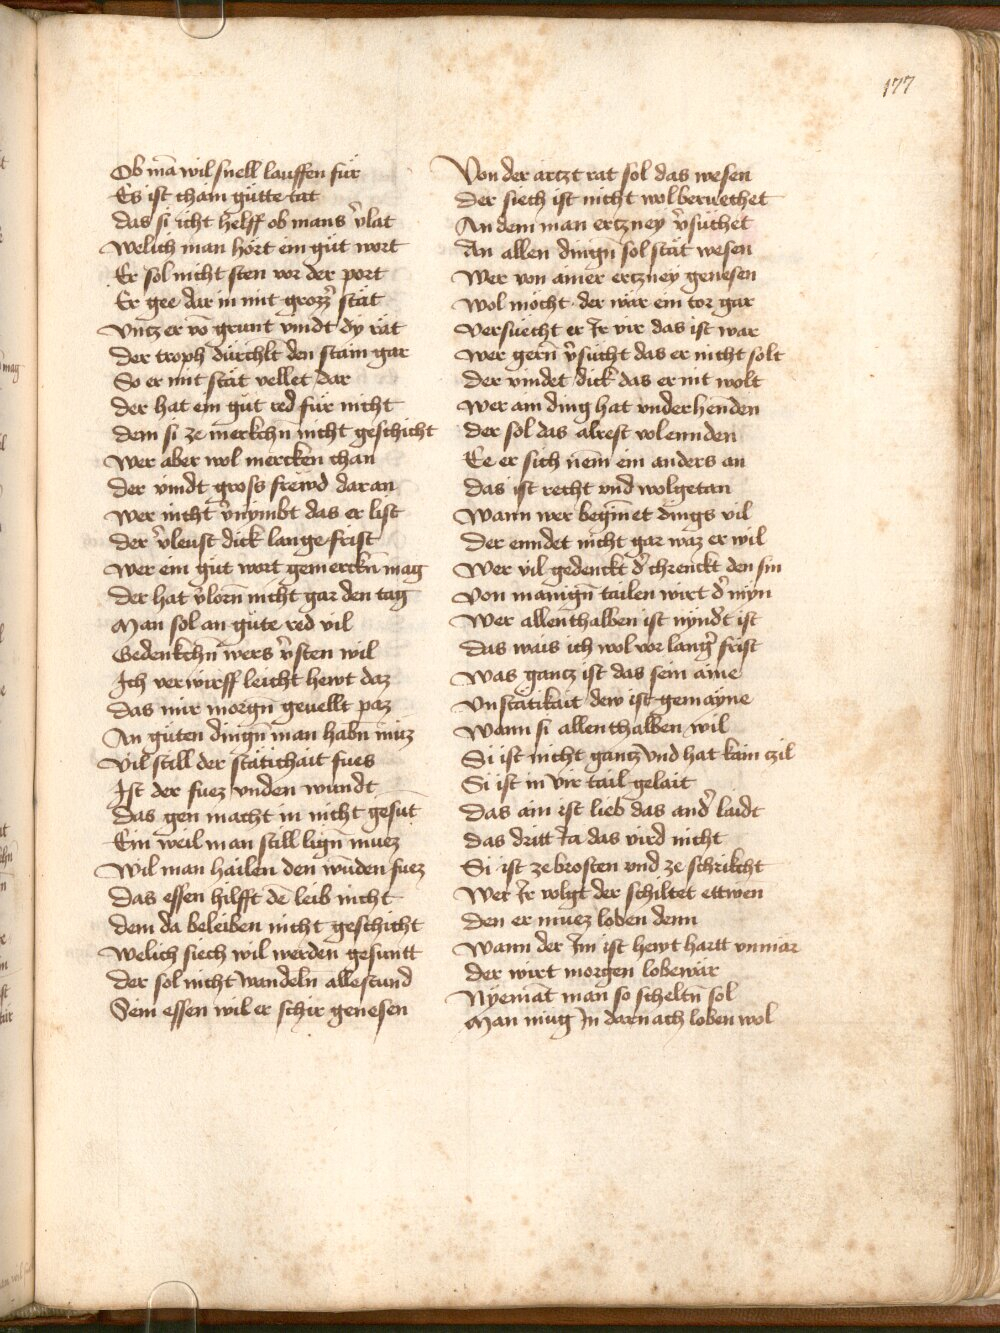 177
Ob mā wil snell lauffen für
Es ist chain gütte tat
das si icht helff ob mans v̄lat
Welich man hört ein güt wort
Er sol nicht sten vor der port
Er gee dar in mit grozz̄ stät
Vntz er vō grunt vindt dy rät
Der troph dürchlt den stain gar
So er mit stät vellet dar
Der hat ein güt red für nicht
dem si ze merkchn̄ nicht geschicht
Wer aber wol mercken chan
Der vindt gross frewd daran
Wer nicht v̄nymbt das er list
der v̄leust dick lange frist
Wer ein güt wort gemerckn̄ mag
Der hat v̄lorn̄ nicht gar den tag
Man sol an güte red vil
Gedenkchn̄ wers v̄sten wil
Ich verwirff leicht hewt daz
das mir morgn̄ geuellt paz
An güten dingn̄ man habn̄ müz
Vil still der stätichait fues
Ist der fuez vnden wundt
das gen macht in nicht gesüt
Ein weil man still lign̄ muez
Wil man hailen den wūden fuez
Das essen hilfft dē leib nicht
dem da beleiben nicht geschicht
Welich siech wil werden gesuntt
der sol nicht wandeln̄ allestund
Sein essen wil er schir genesen
Von der artzt rat sol das wesen
der siech ist nicht wol beruechet
An dem man ertzney v̄süchet
An allen dingn̄ sol stät wesen
Wer von ainer ertzney genesen
Wol möcht der wär ein tor gar
Versuecht er Ir vir das ist war
Wer gern̄ v̄sücht das er nicht solt
Der vindet dick das er nit wolt
Wer ain ding hat vnderhenden
der sol das alrest volennden
Ee er sich nem ein anders an
das ist recht vnd wolgetan
Wann wer begīnet dings vil
Der enndet nicht gar waz er wil
Wer vil gedenckt d̄ chrenckt den sin
Von manign̄ tailen wirt d̄ myn
Wer allenthalben ist nyndt ist
das wais ich wol vor lanḡ frist
Was gantz ist das sein aine
Vnstätikait dew ist gemayne
Wann si allenthalben wil
Si ist nicht gantz vnd hat kain czil
Si ist in vir tail gelait
Das ain ist lieb das and̄ laidt
das dritt Ia das vird nicht
Si ist zebrosten vnd ze schrikcht
Wer Ir volgt der schiltet ettwen
den er muez loben denn
Wann der Im ist hewt hartt vnmar
der wirt morgen lobewär
Nyemāt man so scheltn̄ sol
Man müg In darnach loben wol